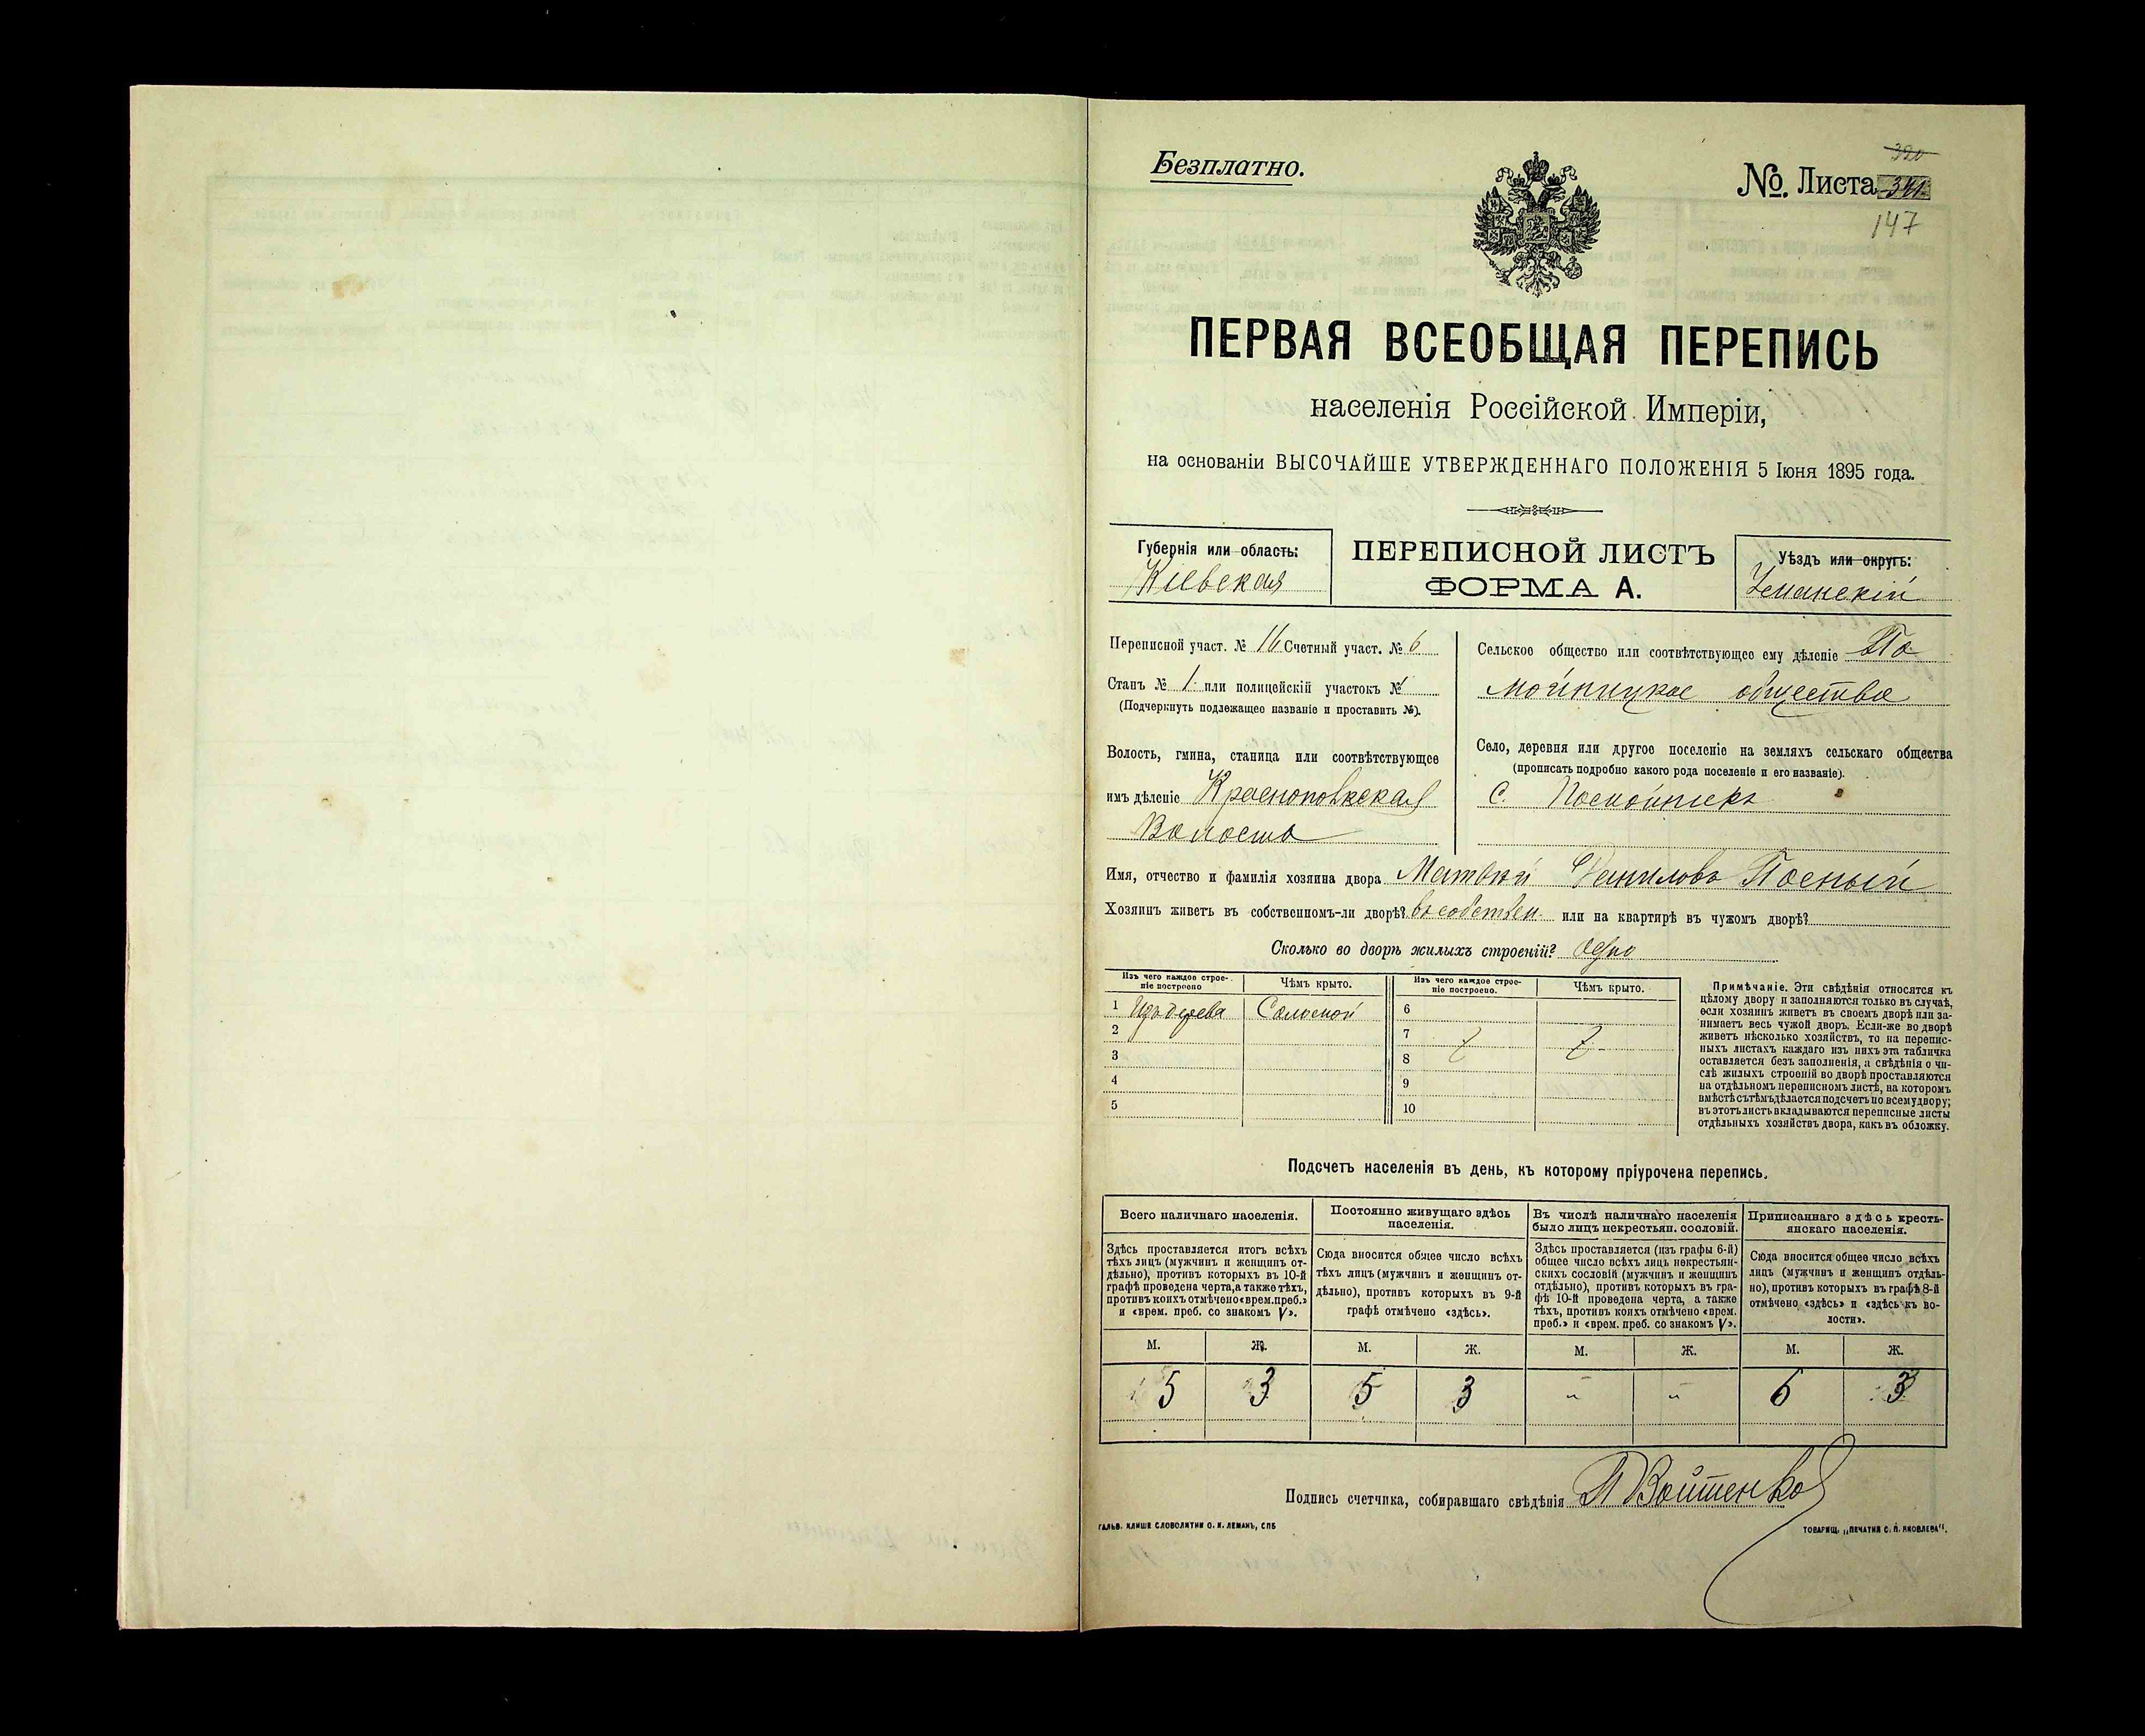 Безплатно.
№ Листа 341
320
147
ПЕРВАЯ ВСЕОБЩАЯ ПЕРЕПИСЬ
населенія Россійской Имперіи,
на основаніи ВЫСОЧАЙШЕ УТВЕРЖДЕННАГО ПОЛОЖЕНІЯ 5 Іюня 1895 года.
Губернія или область:
Кіевская
ПЕРЕПИСНОЙ ЛИСТЪ
ФОРМА А.
Уѣздъ или округъ:
Уманскій
Переписной участ. № 16 Счетный участ. № 6
Станъ № 1 или полицейскій участокъ №
(Подчеркнуть подлежащее названіе и проставить №).
Волость, гмина, станица или соотвѣтствующее
имъ дѣленіе Краснополкская
Волость
Сельское общество или соотвѣтствующее ему дѣленіе По
мойницкое общество
Село, деревня или другое поселеніе на земляхъ сельскаго общества
(прописать подробно какого рода поселеніе и его названіе).
с. Помойникъ
Имя, отчество и фамилія хозяина двора Матвѣй Даниловъ Посный
Хозяинъ живетъ въ собственномъ-ли дворѣ? въ собствен. или на квартирѣ въ чужомъ дворѣ?
Сколько во дворѣ жилыхъ строеній? Одно
Изъ чего каждое строе-
ніе построено
Чѣмъ крыто.
Изъ чего каждое строе-
ніе построено.
Чѣмъ крыто.
1 Изъ дерева Соломой
2
3
4
5
6
7
8
9
10
Примѣчаніе. Эти свѣдѣнія относятся къ
цѣлому двору и заполняются только въ случаѣ,
если хозяинъ живетъ въ своемъ дворѣ или за-
нимаетъ весь чужой дворъ. Если-же во дворѣ
живетъ нѣсколько хозяйствъ, то на перепис-
ныхъ листахъ каждаго изъ нихъ эта табличка
оставляется безъ заполненія, а свѣдѣнія о чи-
слѣ жилыхъ строеній во дворѣ проставляются
на отдѣльномъ переписномъ листѣ, на которомъ
вмѣстѣ съ тѣмъ дѣлается подсчетъ по всему двору;
въ этотъ листъ вкладываются переписные листы
отдѣльныхъ хозяйствъ двора, какъ въ обложку.
Подсчетъ населенія въ день, къ которому пріурочена перепись.
Всего наличнаго населенія.
Здѣсь проставляется итогъ всѣхъ
тѣхъ лицъ (мужчинъ и женщинъ от-
дѣльно), противъ которыхъ въ 10-й
графѣ проведена черта, а также тѣхъ,
противъ коихъ отмѣчено «врем. преб.»
и «врем. преб. со знакомъ V».
Постоянно живущаго здѣсь
населенія.
Сюда вносится общее число всѣхъ
тѣхъ лицъ (мужчинъ и женщинъ от-
дѣльно), противъ которыхъ въ 9-й
графѣ отмѣчено «здѣсь».
Въ числѣ наличнаго населенія
было лицъ некрестьян. сословій.
Здѣсь проставляется (изъ графы 6-й)
общее число всѣхъ лицъ некрестьян-
скихъ сословій (мужчинъ и женщинъ
отдѣльно), противъ которыхъ въ гра-
фѣ 10-й проведена черта, а также
тѣхъ, противъ коихъ отмѣчено «врем.
преб.» и «врем. преб. со знакомъ V».
Приписаннаго здѣсь кресть-
янскаго населенія.
Сюда вносится общее число всѣхъ
лицъ (мужчинъ и женщинъ отдѣль-
но), противъ которыхъ въ графѣ 8-й
отмѣчено «здѣсь» и «здѣсь къ во-
лости».
М. Ж. М. Ж. М. Ж. М. Ж.
5 3 5 3 " " 6 3
Подпись счетчика, собиравшаго свѣдѣнія П Войтенко
ГАЛЬВ. КЛИШЕ СЛОВОЛИТНИ О. И. ЛЕМАНЪ, СПБ
ТОВАРИЩ. „ПЕЧАТНЯ С. П. ЯКОВЛЕВА".